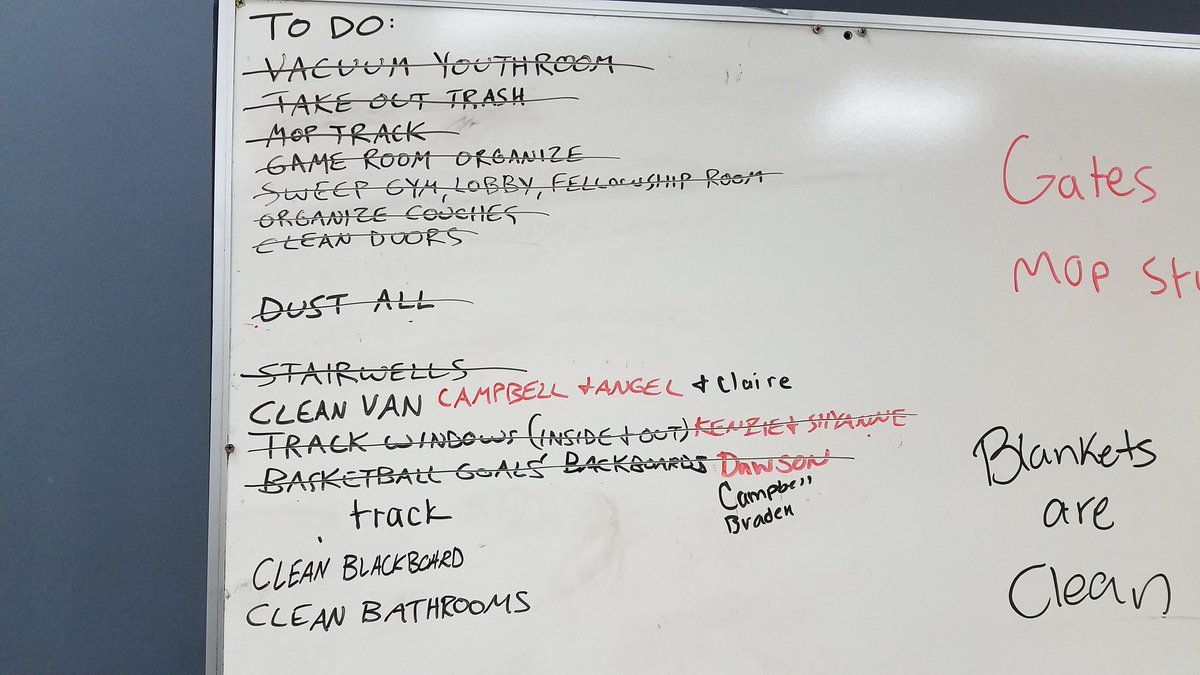 TO DO:
VACUUM YOUTHROOM
TAKE OUT TRASH
MOP TRACK
GAME ROOM ORGANIZE
SWEEP GYM, LOBBY, FELLOWSHIP ROOM
ORGANIZE COUCHES
CLEAN DOORS
DUST ALL
STAIRWELLS
CLEAN VAN CAMPBELL + ANGEL + Claire
TRACK WINDOWS (INSIDE + OUT) KENZIE + SHYANNE
BASKETBALL GOALS' BACKBOARDS DAWSON
Campbell
Braden
track
CLEAN BLACKBOARD
CLEAN BATHROOMS
Gates
MOP
Blankets
are
Clean